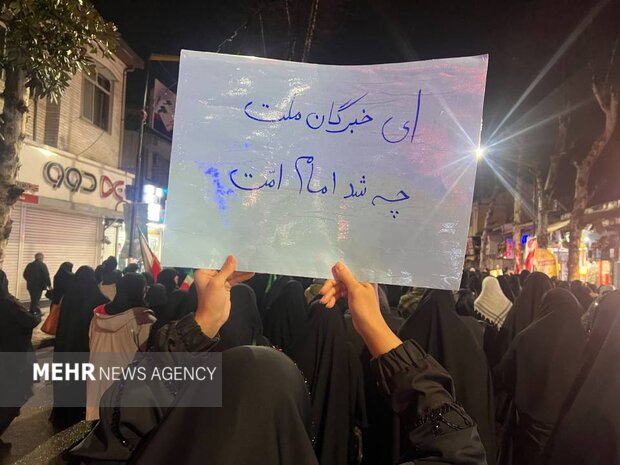 ای خبرگان ملت
چه شد امام امّت
MEHR NEWS AGENCY